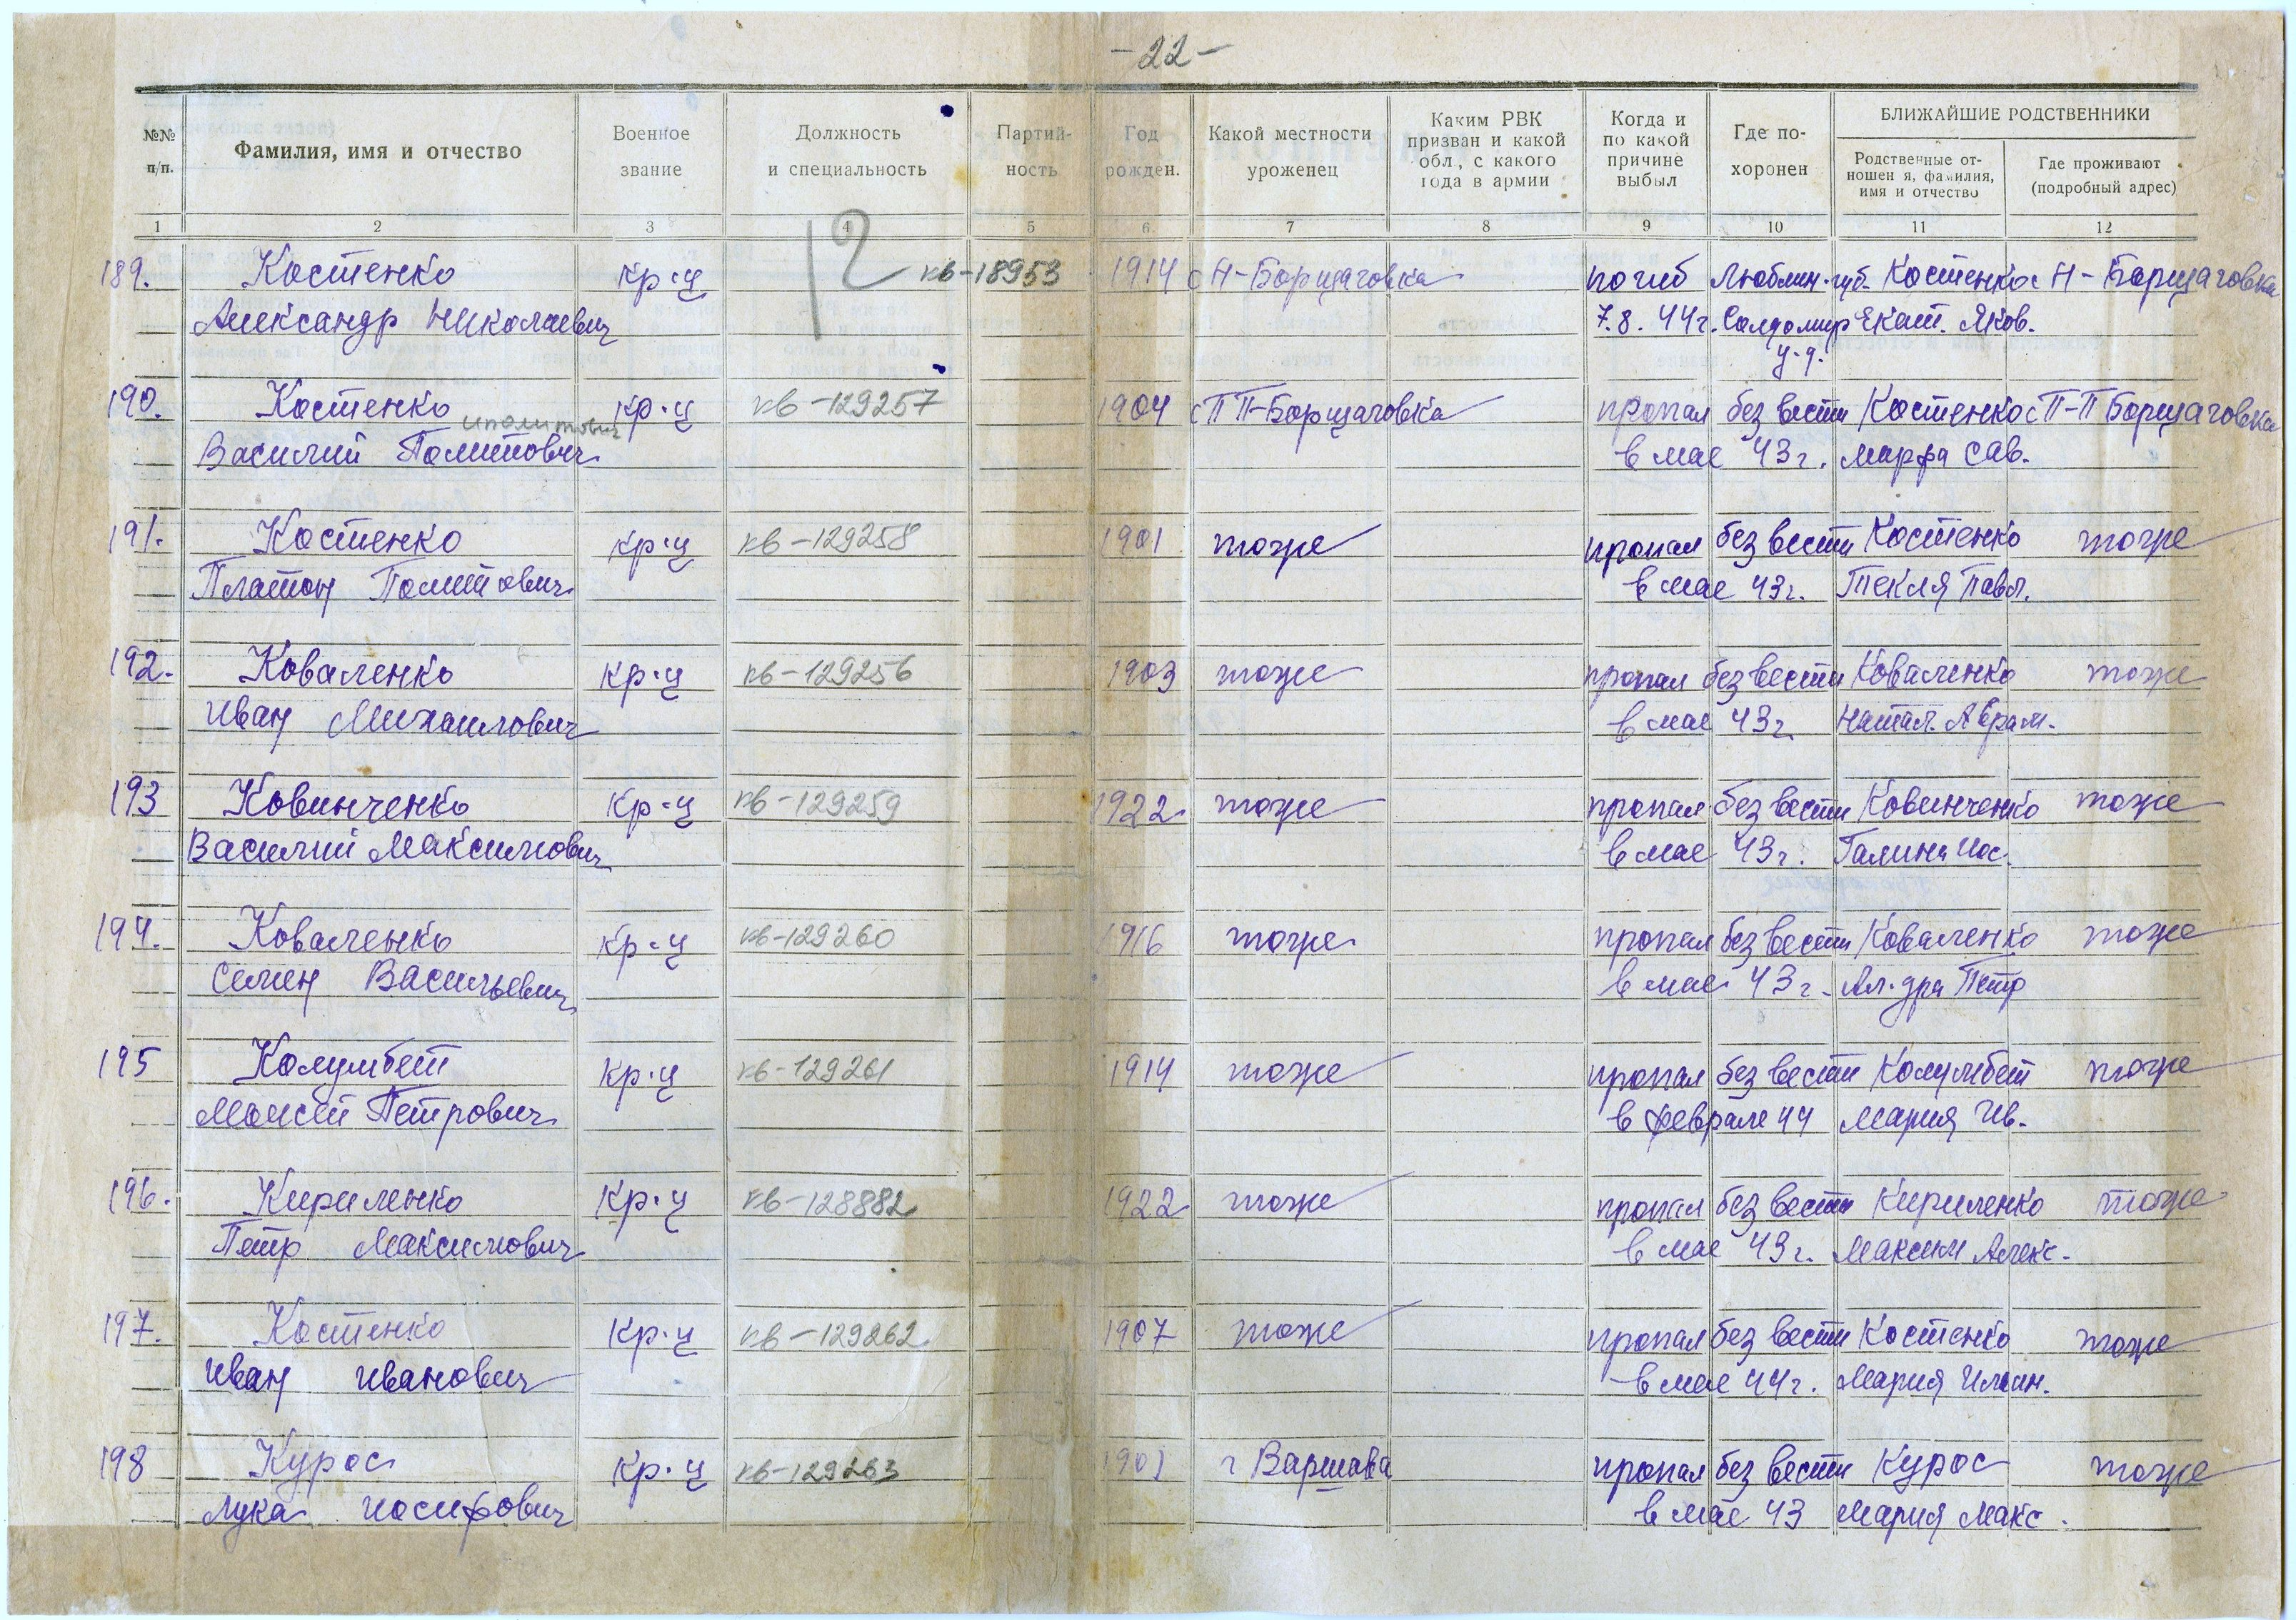 -22-
№№ п/п.
Фамилия, имя и отчество
Военное звание
Должность и специальность
Партий-ность
Год рожден.
Какой местности уроженец
Каким РВК призван и какой обл., с какого года в армии
Когда и по какой причине выбыл
Где по-хоронен
БЛИЖАЙШИЕ РОДСТВЕННИКИ
Родственные от-ношен я, фамилия, имя и отчество
Где проживают (подробный адрес)
1 2 3 4 5 6 7 8 9 10 11 12
12
189. Костенко кр-ц кв-18953 1914 с Н-Борщаговка погиб Люблин. губ. Костенко с Н-Борщаговка
Александр Николаевич 7.8.44г. Екат. Яков.
у.д.
190. Костенко кр-ц кв-129257 1904 с ПП-Борщаговка пропал без вести Костенко с П-П Борщаговка
иполитович
Василий Политович в мае 43г. Марфа Сав.
191. Костенко кр-ц кв-129258 1901 тоже пропал без вести Костенко тоже
Платон Политович в мае 43г. Текля Павл.
192. Коваленко кр-ц кв-129256 1903 тоже пропал без вести Коваленко тоже
Иван Михаилович в мае 43г. Натал. Аврам.
193 Ковинченко кр-ц кв-129259 1922 тоже пропал без вести Ковинченко тоже
Василий Максимович в мае 43г. Галина Иос.
194. Коваленко кр-ц кв-129260 1916 тоже пропал без вести Коваленко тоже
Семен Васильевич в мае 43г. Ал-дра Петр
195 Колумбет кр-ц кв-129261 1914 тоже пропал без вести Колумбет тоже
Моисей Петрович в феврале 44 Мария Ив.
196. Кириленко кр-ц кв-128882 1922 тоже пропал без вести Кириленко тоже
Петр Максимович в мае 43г. Максим Алекс.
197. Костенко кр-ц кв-129262 1907 тоже пропал без вести Костенко тоже
Иван Иванович в мае 44г. Мария
198 Курос кр-ц кв-129263 г Варшава пропал без вести Курос тоже
Лука Иосифович в мае 43 Мария Макс.